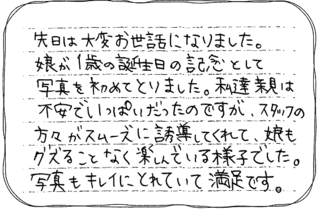 先日は大変お世話になりました。
娘が1歳の誕生日の記念として
写真を初めてとりました。私達親は
不安でいっぱいだったのですが、スタッフの
方々がスムーズに誘導してくれて、娘も
グズることなく楽しんでいる様子でした。
写真もキレイにとれていて満足です。